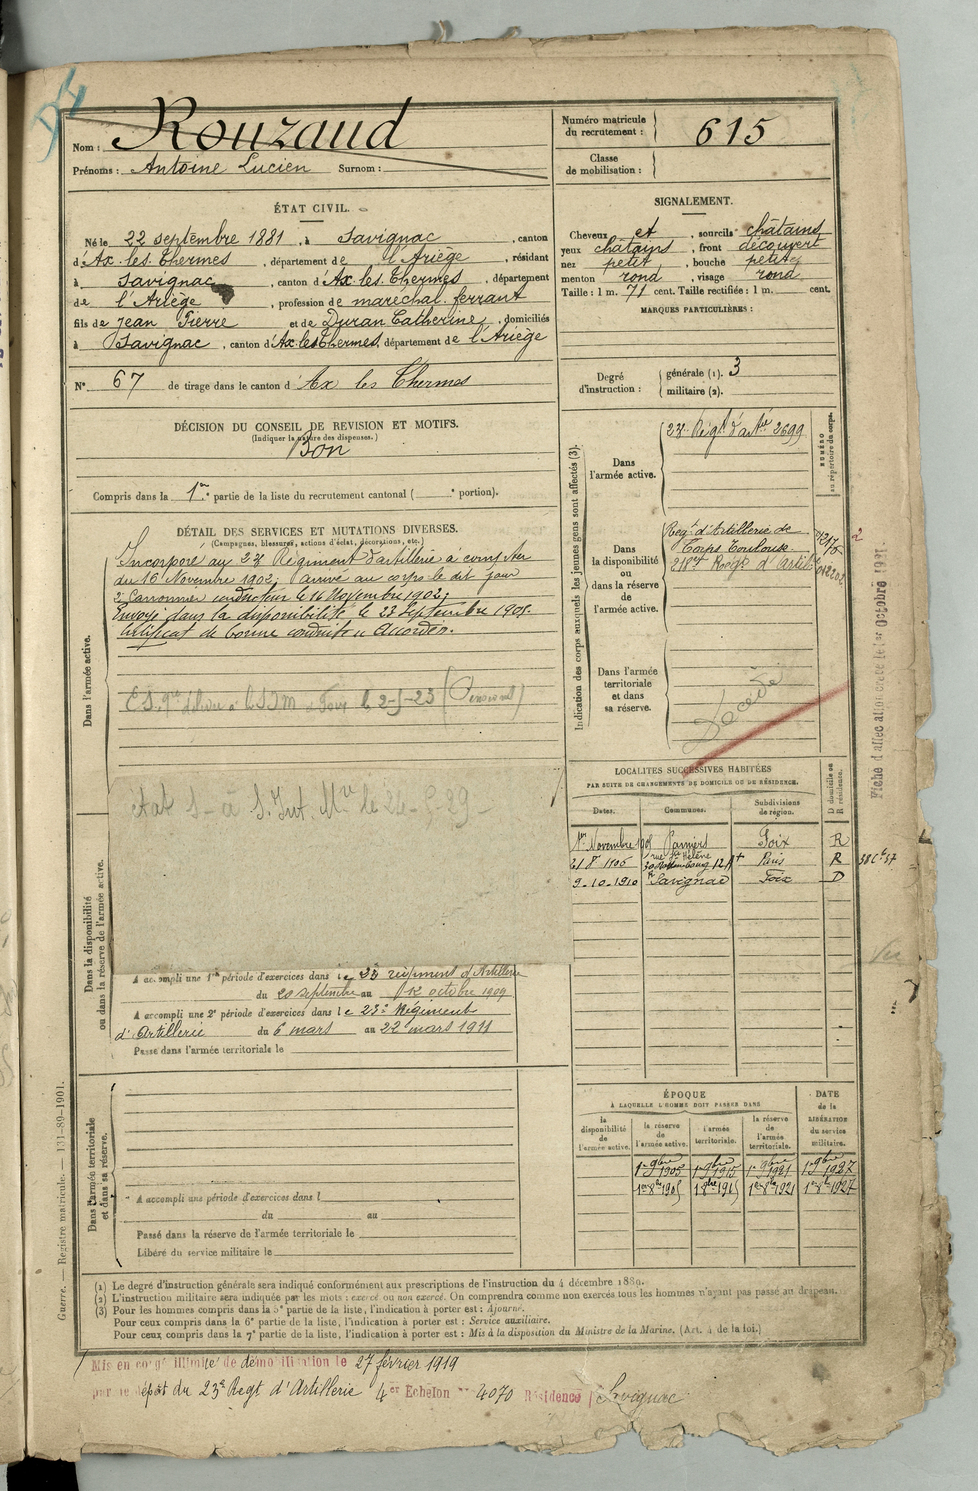 Nom : Rouzaud
Prénoms : Antoine Lucien Surnom :
Numéro matricule du recrutement : 615
Classe de mobilisation :
ÉTAT CIVIL.
Né le 22 septembre 1881, à Savignac, canton
d'Ax-les-Thermes, département de l'Ariège, résidant
à Savignac, canton d'Ax les Thermes, département
de l'Ariège, profession de maréchal ferrant
fils de Jean Pierre et de Duran Catherine, domiciliés
à Savignac, canton d'Ax-les-Thermes, département de l'Ariège
N° 67 de tirage dans le canton d'Ax les Thermes
SIGNALEMENT.
Cheveux et, sourcils châtains
yeux châtains, front découvert
nez petit, bouche petite
menton rond, visage rond
Taille : 1 m. 71 cent. Taille rectifiée : 1 m. cent.
MARQUES PARTICULIÈRES :
Degré d'instruction : générale (1). 3
militaire (2).
DÉCISION DU CONSEIL DE REVISION ET MOTIFS.
(Indiquer la nature des dispenses.)
Bon
Compris dans la 1re partie de la liste du recrutement cantonal ( e portion).
DÉTAIL DES SERVICES ET MUTATIONS DIVERSES.
(Campagnes, blessures, actions d'éclat, décorations, etc.)
Dans l'armée active.
Incorporé au 23 Régiment d'artillerie à compter
du 16 Novembre 1902; arrivé au corps le dit jour
2e Canonnier conducteur le 16 Novembre 1902;
Envoyé dans la disponibilité le 23 Septembre 1905.
Certificat de bonne conduite "Accordé".
le 2-5-23
Dans la disponibilité ou dans la réserve de l'armée active.
A accompli une 1re période d'exercices dans le 23 régiment d'Artillerie
du 20 septembre au 12 octobre 1909
A accompli une 2e période d'exercices dans le 23e Régiment
d'Artillerie du 6 mars au 22 mars 1911
Passé dans l'armée territoriale le
Dans l'armée territoriale et dans sa réserve.
A accompli une période d'exercices dans l
du au
Passé dans la réserve de l'armée territoriale le
Libéré du service militaire le
Indication des corps auxquels les jeunes gens sont affectés (3).
NUMÉRO au répertoire du corps.
Dans l'armée active.
23e Régt d'artie 2699
Dans la disponibilité ou dans la réserve de l'armée active.
Régt d'Artillerie de
Corps Toulouse
Dans l'armée territoriale et dans sa réserve.
Décédé
Fiché d'affectation cce le 1er octobre 1921.
LOCALITÉS SUCCESSIVES HABITÉES
PAR SUITE DE CHANGEMENTS DE DOMICILE OU DE RÉSIDENCE.
Dates. Communes. Subdivisions de région. D domicile ou R résidence.
1er Novembre 1905 Pamiers Foix R
21 8 1906 Paris R
9-10-1910 Savignac Foix D
ÉPOQUE
À LAQUELLE L'HOMME DOIT PASSER DANS
la disponibilité de l'armée active. la réserve de l'armée active. l'armée territoriale. la réserve de l'armée territoriale. DATE de la LIBÉRATION du service militaire.
1er 9bre 1905 1er 9bre 1915 1er 9bre 1921 1er 9bre 1927
1er 8bre 1905 1er 8bre 1915 1er 8bre 1921 1er 8bre 1927
Guerre. — Registre matricule. — 131-89-1901.
(1) Le degré d'instruction générale sera indiqué conformément aux prescriptions de l'instruction du 4 décembre 1889.
(2) L'instruction militaire sera indiquée par les mots : exercé ou non exercé. On comprendra comme non exercés tous les hommes n'ayant pas passé au drapeau.
(3) Pour les hommes compris dans la 5e partie de la liste, l'indication à porter est : Ajourné.
Pour ceux compris dans la 6e partie de la liste, l'indication à porter est : Service auxiliaire.
Pour ceux compris dans la 7e partie de la liste, l'indication à porter est : Mis à la disposition du Ministre de la Marine. (Art. 4 de la loi.)
Mis en congé illimité de démobilisation le 27 février 1919
par le dépôt du 23e Regt d'Artillerie 4er Echelon n° 4070 Résidence Savignac